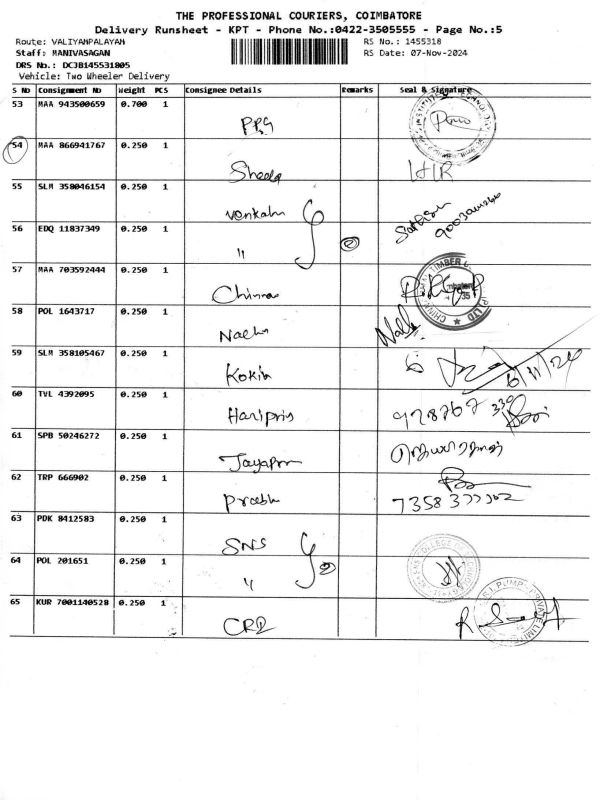 THE PROFESSIONAL COURIERS, COIMBATORE
Delivery Runsheet - KPT - Phone No.:0422-3505555 - Page No.:5
Route: VALIYAMPALAYAM RS No.: 1455318
Staff: MANIVASAGAN RS Date: 07-Nov-2024
DRS No.: DCJB145531805
Vehicle: Two Wheeler Delivery
S No Consignment No Weight PCS Consignee Details Remarks Seal & Signature
53 MAA 943500659 0.700 1 PRG
54 MAA 866941767 0.250 1 Sheela
55 SLM 358046154 0.250 1 Venkatn
56 EDQ 11837349 0.250 1 " 2
57 MAA 703592444 0.250 1 Chinna
58 POL 1643717 0.250 1 Nalla
59 SLM 358105467 0.250 1 Kokila 6/11/24
60 TVL 4392095 0.250 1 Haripris
61 SPB 50246272 0.250 1 Jayapra
62 TRP 666902 0.250 1 Prabhu
63 PDK 8412583 0.250 1 SNS
64 POL 201651 0.250 1 " 2
65 KUR 7001140528 0.250 1 CRI